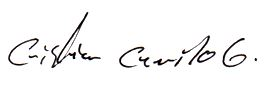 Cristian Camilo G.